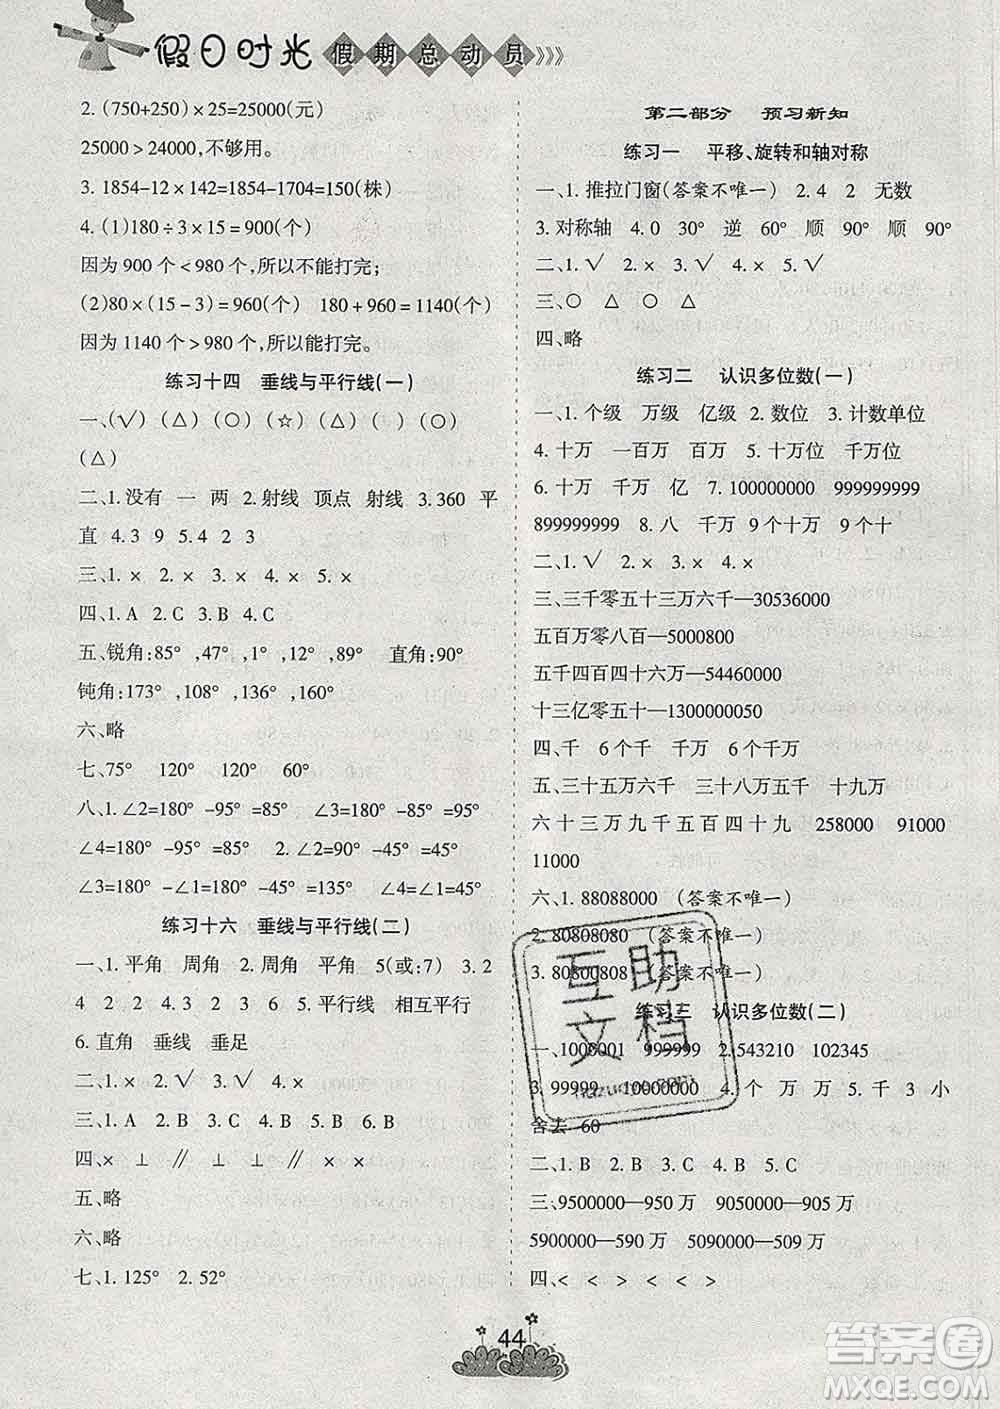 假日时光 假期总动员
2. (750+250)×25=25000(元)
25000＞24000,不够用。
3. 1854-12×142=1854-1704=150(株)
4. (1)180÷3×15=900(个)
因为 900 个＜980 个,所以不能打完;
(2)80×(15-3)=960(个) 180+960=1140(个)
因为 1140 个＞980 个,所以能打完。
练习十四 垂线与平行线(一)
一、(√) (△) (○) (☆) (△) ( ) (○)
(△)
二、1.没有 一 两 2.射线 顶点 射线 3.360 平
直 4.3 9 5.4 2 3
三、1.× 2.× 3.× 4.√ 5.×
四、1.A 2.C 3.B 4.C
五、锐角:85° ,47° ,1° ,12° ,89° 直角:90°
钝角:173° ,108° ,136° ,160°
六、略
七、75° 120° 120° 60°
八、1.∠2=180° -95° =85° ∠3=180° -85° =95°
∠4=180° -95° =85° 2.∠1=180° -135° =45°
∠3=180° -45° =135° ∠4=180° -135° =45°
练习十六 垂线与平行线(二)
一、1.平角 周角 2.周角 平角 5(或:7) 3.2
4 2 2 4.3 2 3 6 5.平行线 相互平行
6.直角 垂线 垂足
二、1.× 2.√ 3.√ 4.×
三、1.A 2.C 3.B 4.A 5.B 6.B
四、× ⊥ ∥ ⊥ ∥ × ×
五、略
六、略
七、1.125° 2.52°
第二部分 预习新知
练习一 平移、旋转和轴对称
一、1.推拉门窗(答案不唯一) 2.4 2 无数
3.对称轴 4.0 30° 逆 60° 顺 90° 顺 90°
二、1.√ 2.√ 3.√ 4.× 5.√
三、○ △ ○ △ △
四、略
练习二 认识多位数(一)
一、1.个级 万级 亿级 2.数位 3.计数单位
4.十万 一百万 百万 5.十万位 千万位
6.十万 千万 亿 7.100000000 999999999
899999999 8.八 千万 9 个十万 9 个十
二、1.√ 2.× 3.× 4.√ 5.×
三、三千零五十三万六千—30536000
五百万零八百—5000800
五千四百四十六万—54460000
十三亿零五十—1300000050
四、千 6 个千 千万 6 个千万
五、三十五万六千 七万八千 十九万
六十三万九千五百四十九 258000 91000
11000
六、1.88088000 (答案不唯一)
2.80808080 (答案不唯一)
3.80800808 (答案不唯一)
练习三 认识多位数(二)
一、1000001 999999 2.543210 102345
3.99999 10000000 4.个 万 万 5.千 3 小
舍去 60
二、1.B 2.B 3.C 4.B 5.B
三、9500000—950 万 9050000—905 万
5900000—590 万 5090000—509 万
四、＜ ＜ ＞ ＜ ＜ ＞
44
互助
文档
答案圈
MXQE.COM